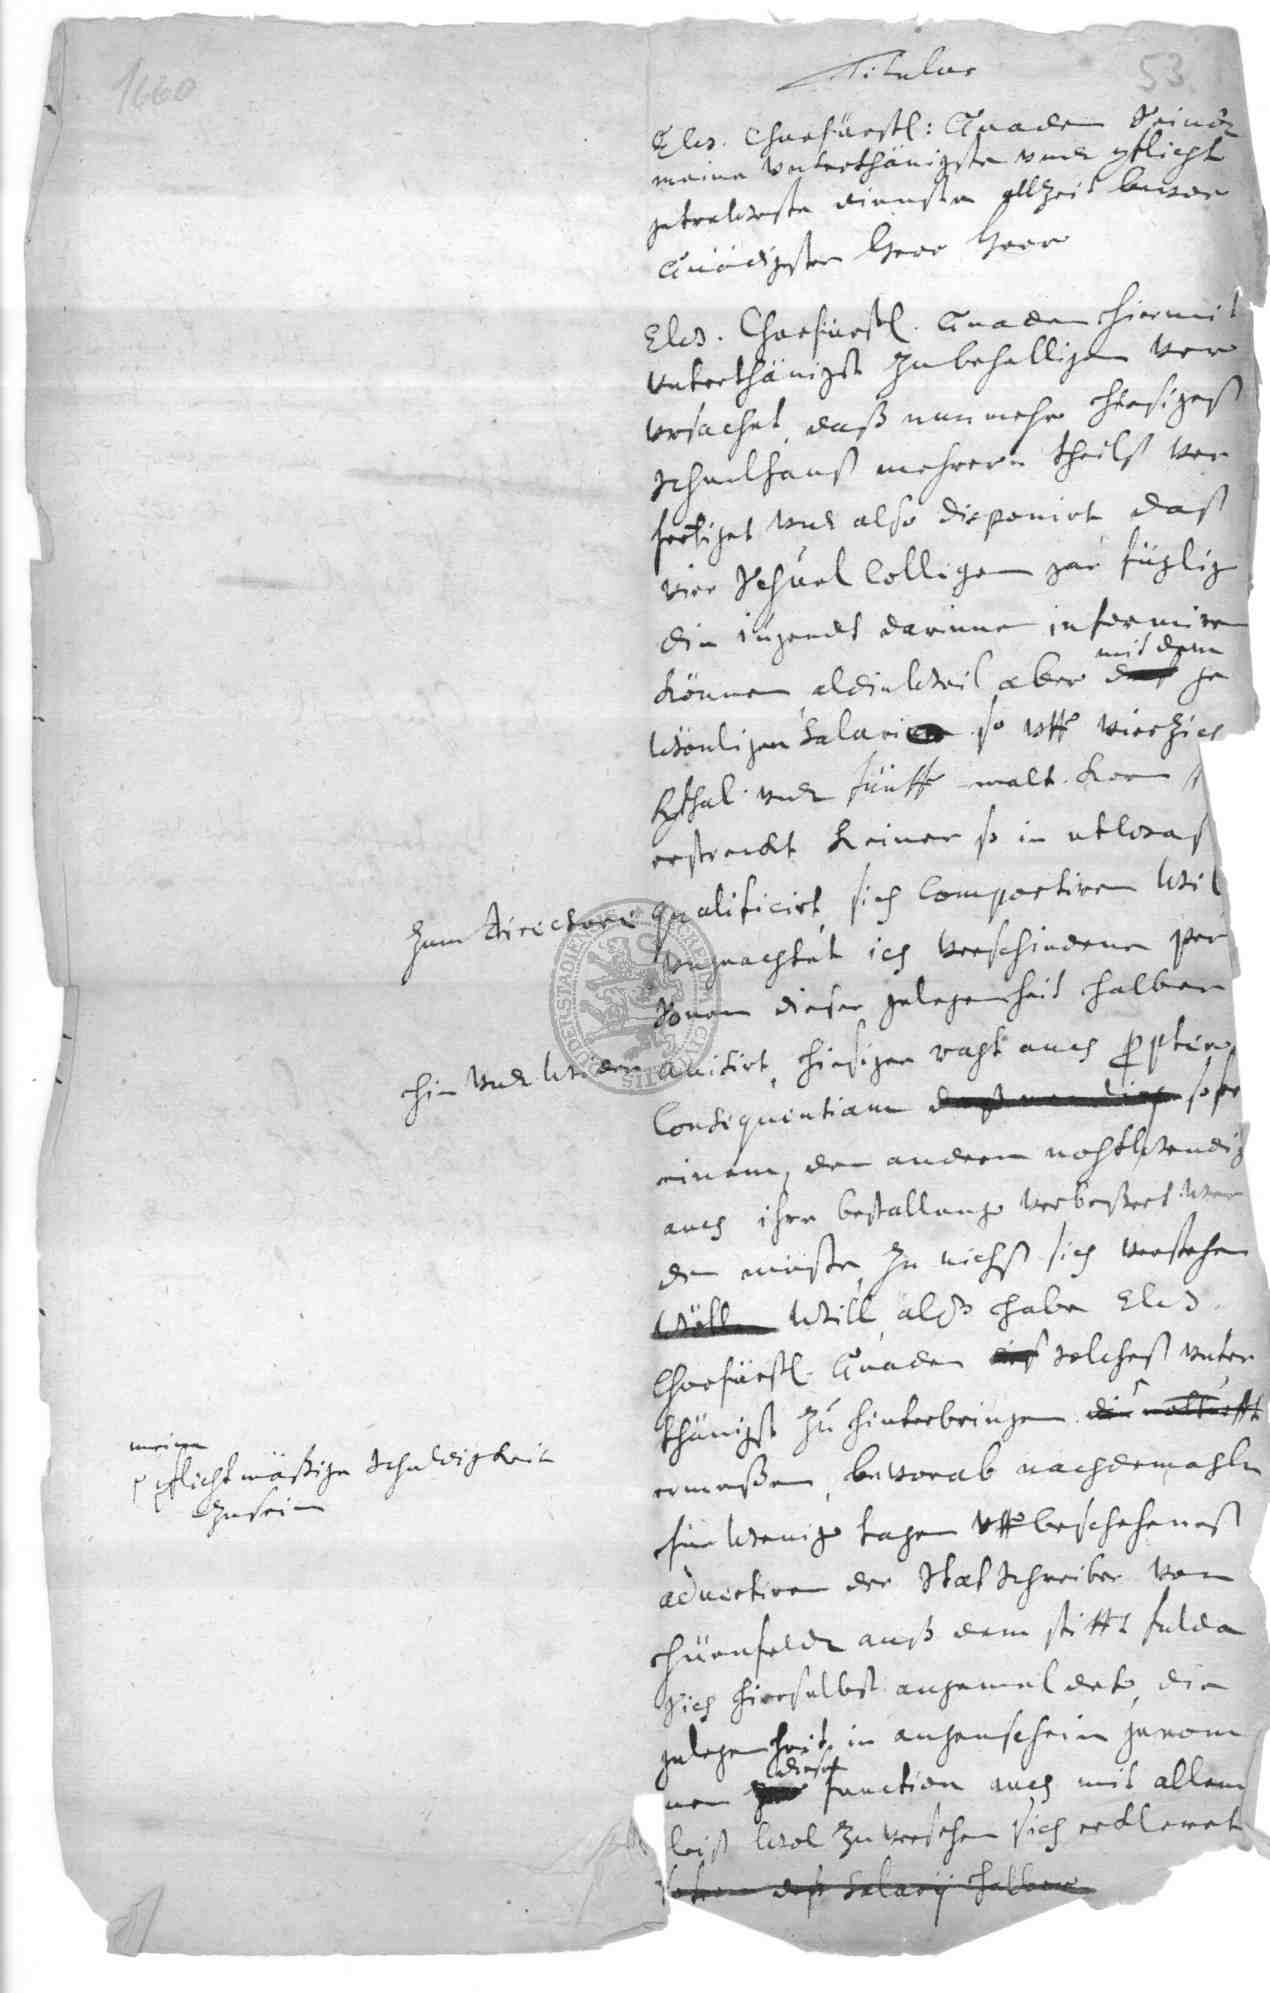 1660
53
Titulus
Ew. Churfürstl: Gnaden Seindt
meine Unterthänigste undt pflicht
getrewste dienste allzeit bevor
Gnädigster Herr Herr
Ew. Churfürstl. Gnaden hiermit
unterthänigst zu behelligen ver
ursachet, daß nunmehr hiesigeß
schuelhauß mehrern theilß ver
fertiget undt also disponirt daß
vier Schuel Collegen gar füglig
die jugendt darinne informiren
können, aldieweil aber mit dem ge
wönligen Salario so uff vierzig
Rthal. undt fünff malt. Korn
erstreckt keiner so in etwaß
zum directori qualificirt, sich comportiren wil
ungeachtet ich verschiedene per
sonen dieser gelegenheit halber
hin undt wider avisirt, hiesiger raht auch propter
Consequentiam so
einem, den andern nohtwendig
auch ihre bestallung verbeßert wer
den müste, zu nichß sich verstehen
will, alß habe Ew.
Churfürstl. Gnaden solcheß unter
thänigst zu hinterbringen
meine
pflichtmäßige schuldigkeit
zu sein
ermeßen, bevorab nachdemahln
für wenig tagen uff beschehenes
advertiren der Statschreiber von
Hünfeldt auß dem stifft fulda
sich hierselbst angemeldet, die
gelegenheit in augenschein genom
men dieser function auch mit allem
fleiß wol zu versehen sich erkleret
deß Salarij halber
DUDERSTADIENSIS